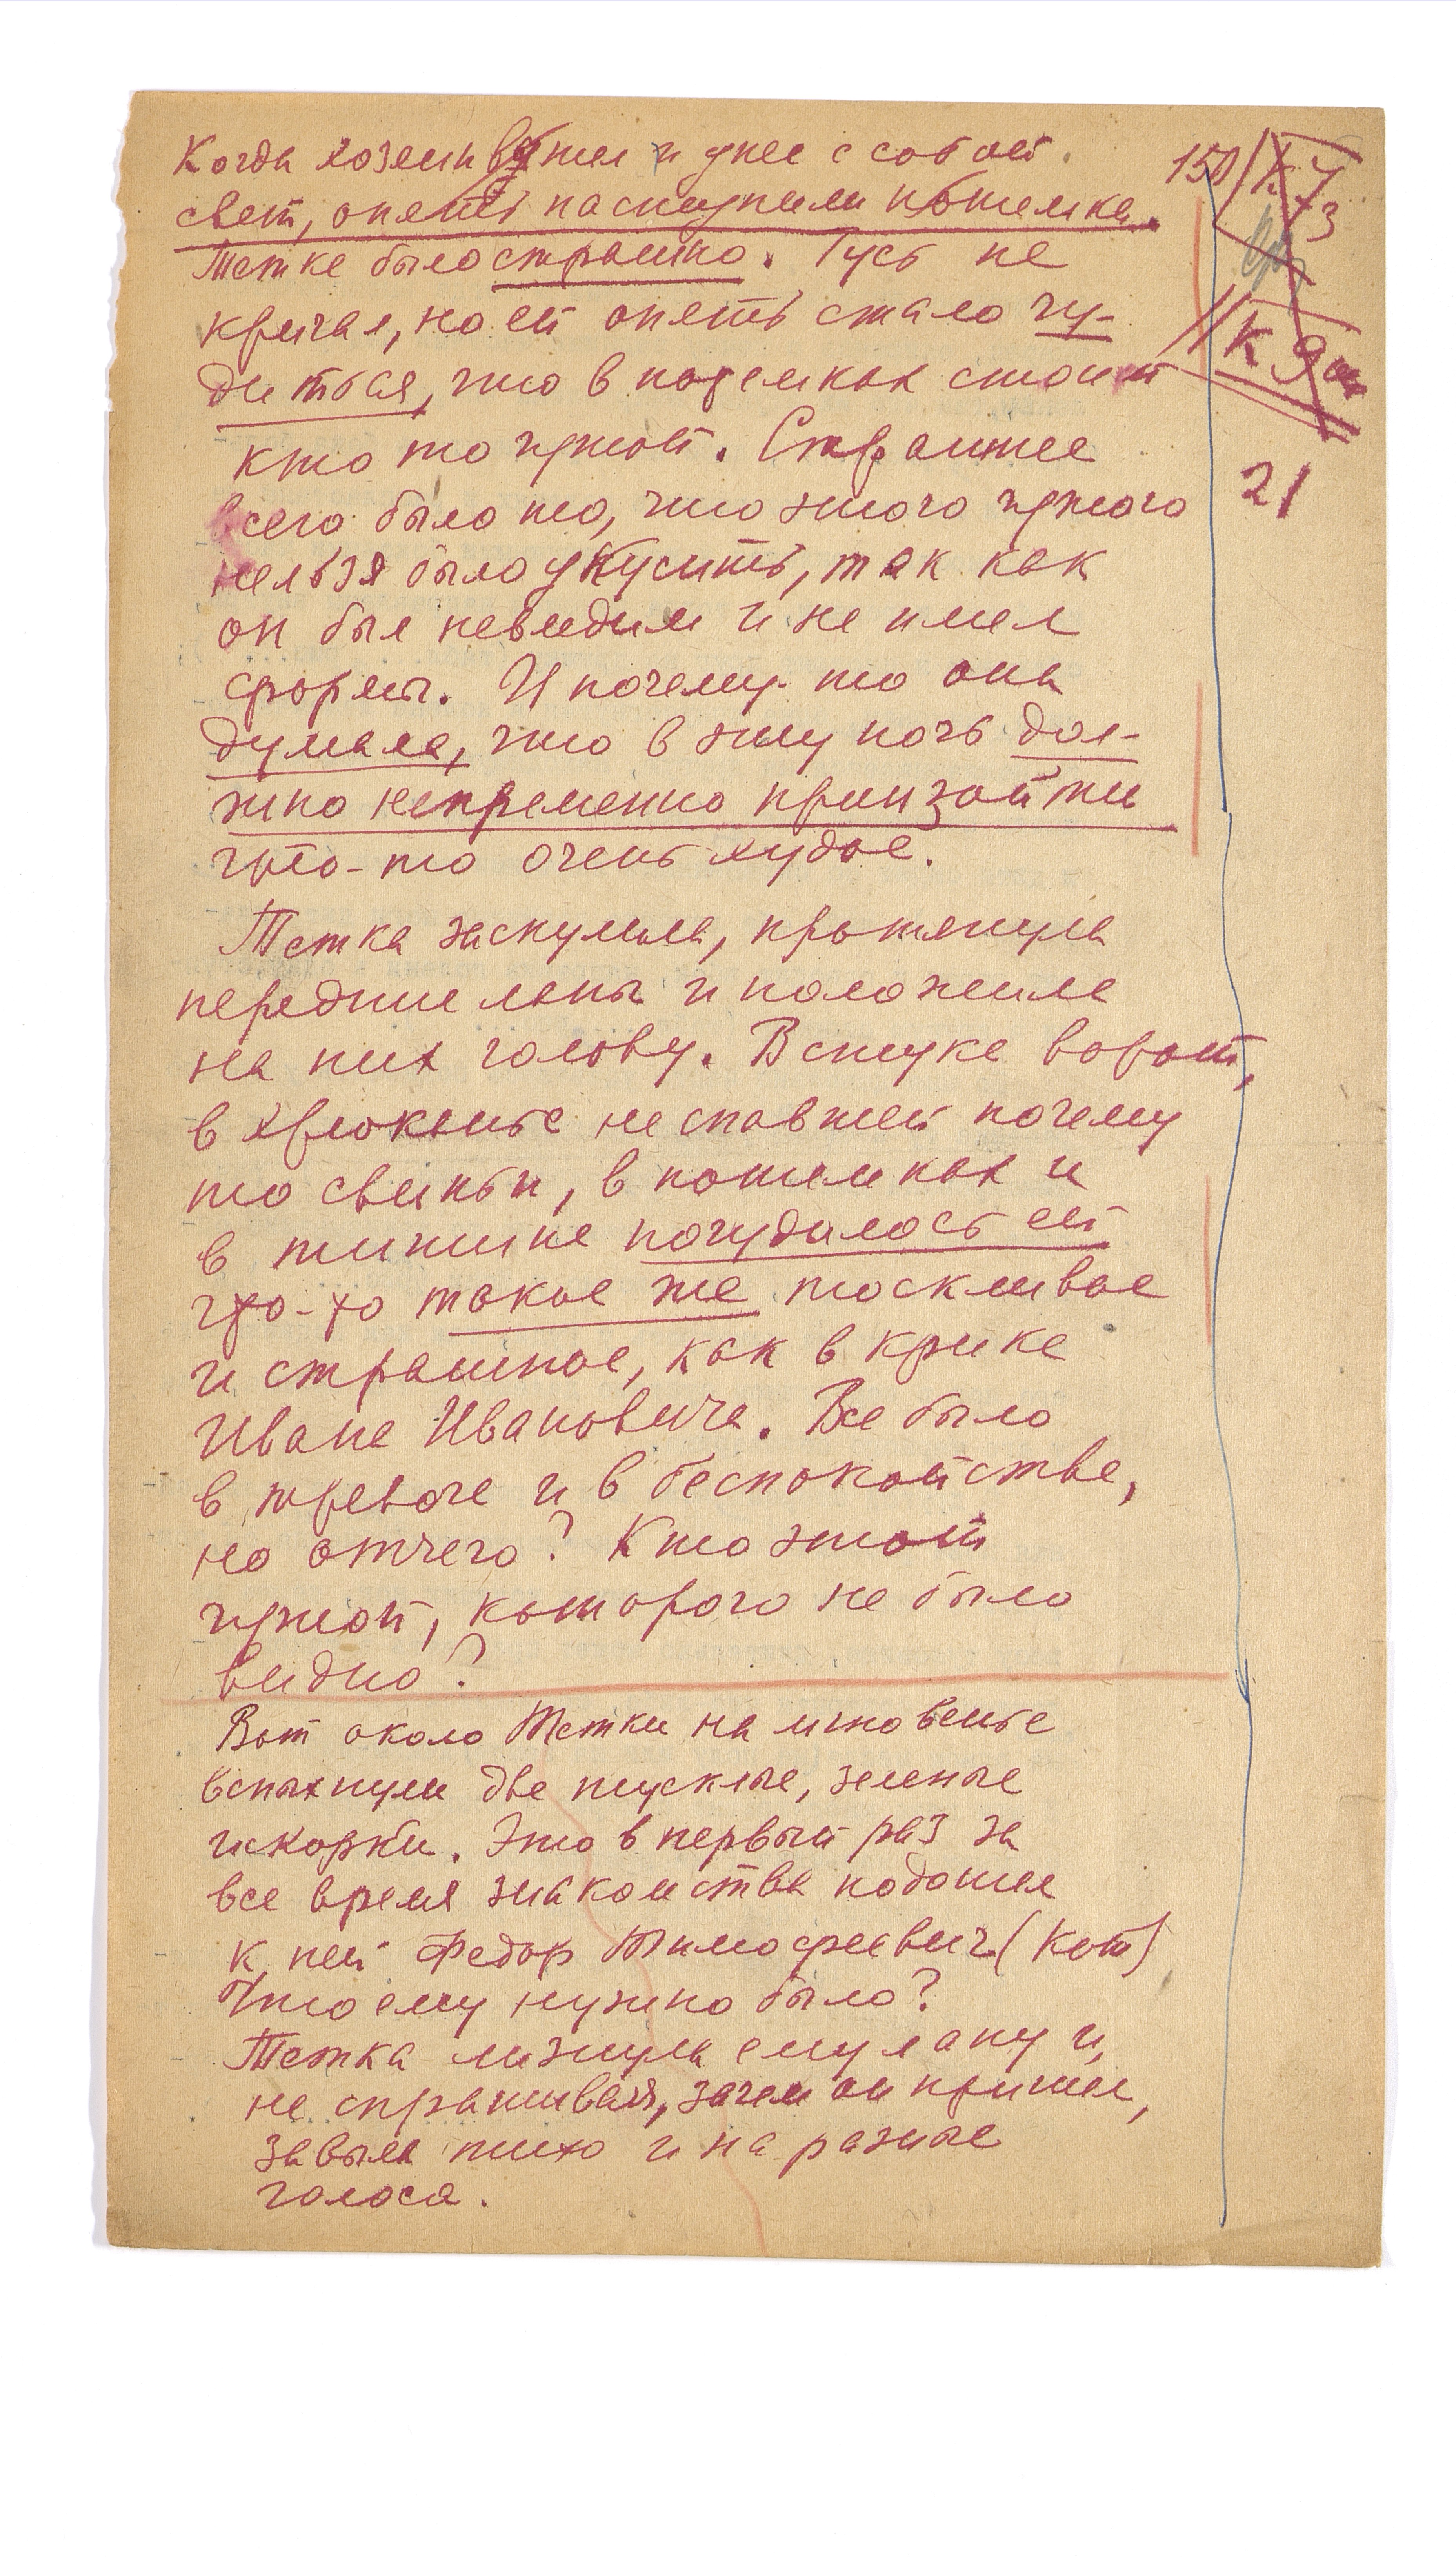 Когда хозяин вышел и унес с собой
свет, опять наступили потемки.
Тетке было страшно. Гусь не
кричал, но ей опять стало чу-
диться, что в потемках стоит
кто то чужой. Страшнее
всего было то, что этого чужого
нельзя было укусить, так как
он был невидим и не имел
формы. И почему-то она
думала, что в эту ночь дол-
жно непременно произойти
что-то очень худое.
Тетка заскулила, протянула
передние лапы и положила
на них голову. В стуке ворот,
в хрюканье не спавшей почему
то свиньи, в потемках и
в тишине почудилось ей
что-то такое же тоскливое
и страшное, как в крике
Ивана Ивановича. Все было
в тревоге и в беспокойстве,
но отчего? Кто этот
чужой, которого не было
видно?
Вот около Тетки на мгновенье
вспыхнули две тусклые, зеленые
искорки. Это в первый раз за
все время знакомства подошел
к ней Федор Тимофеевич (Кот)
Что ему нужно было?
Тетка лизнула ему лапу и,
не спрашивая, зачем он пришел,
завыла тихо и на разные
голоса.
150
К 7
3
К 9
21